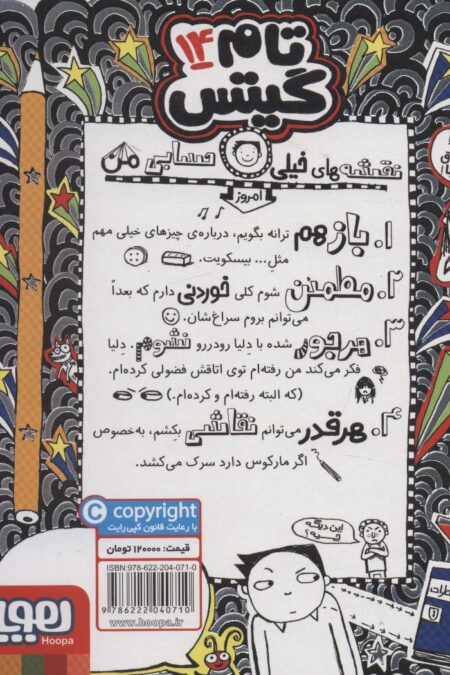 تام ۱۴
گیتس
نقشه‌های خیلی حسابی من
امروز
۱. بازهم ترانه بگویم، درباره‌ی چیزهای خیلی مهم
مثلِ... بیسکویت.
۲. مطمئن شوم کلی خوردنی دارم که بعداً
می‌توانم بروم سراغ‌شان.
۳. هرجور شده با دِلیا رودررو نشوم. دِلیا
فکر می‌کند من رفته‌ام توی اتاقش فضولی کرده‌ام.
(که البته رفته‌ام و کرده‌ام.)
۴. هرقدر می‌توانم نقاشی بکِشم، به‌خصوص
اگر مارکوس دارد سرک می‌کشد.
این دیگه
چیه؟
C copyright
با رعایت قانون کپی‌رایت
قیمت: ۱۲۰۰۰۰ تومان
ISBN: 978-622-204-071-0
9 786222 040710
www.hoopa.ir
هوپا
Hoopa